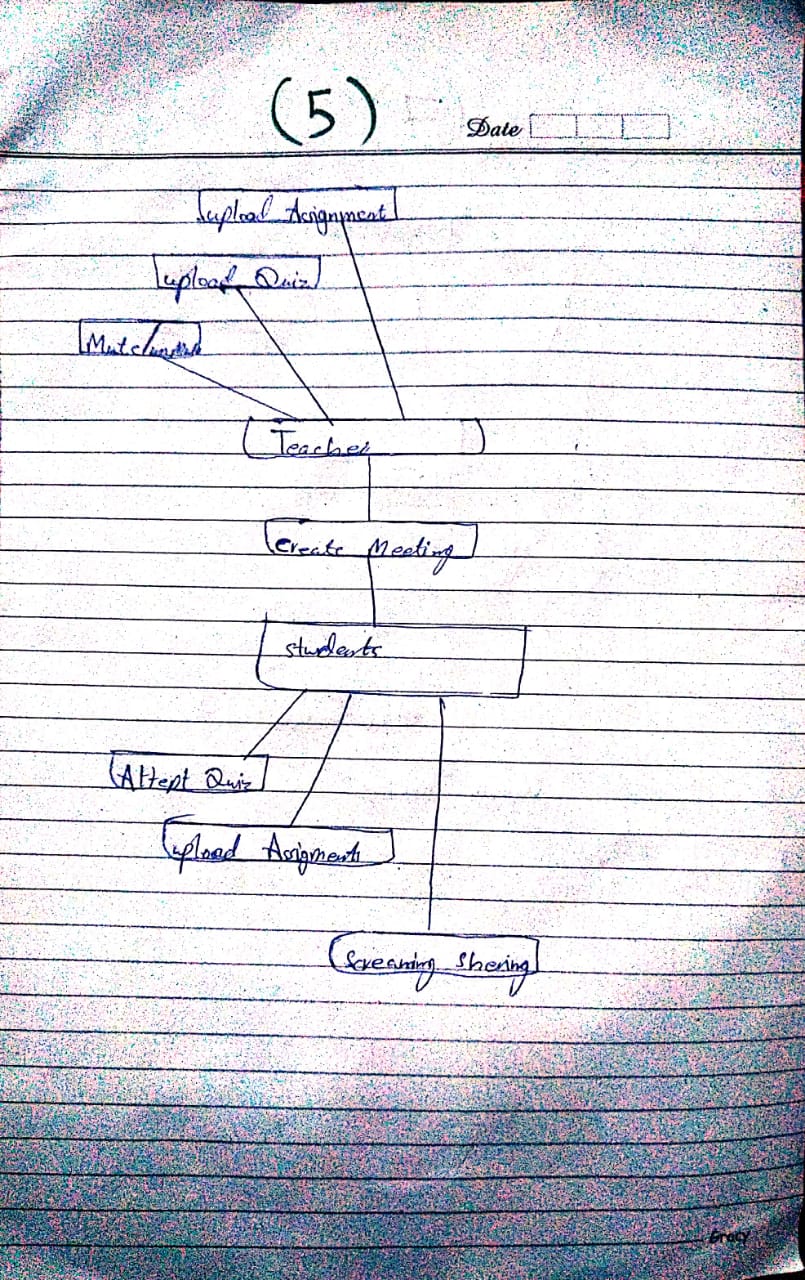 (5)
Date
upload Assignment
upload Quiz
Teacher
Create Meeting
students
Attept Quiz
upload Assigment
Screaming Shering
Gracy